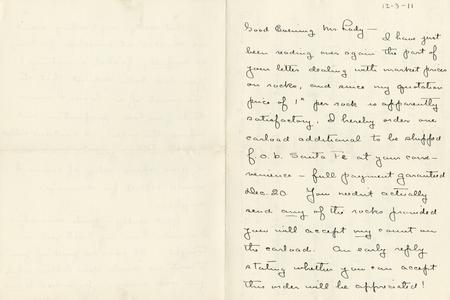 12-3-11
Good Evening My Lady —
I have just
been reading over again the part of
your letter dealing with market prices
on rocks, and since my quotation
price of 1¢ per rock is apparently
satisfactory, I hereby order one
carload additional to be shipped
f.o.b. Santa Fe at your conve-
nience – full payment garanteed
Dec. 20. You needn't actually
send any of the rocks provided
you will accept my count on
the carload. An early reply
stating whether you can accept
this order will be appreciated!